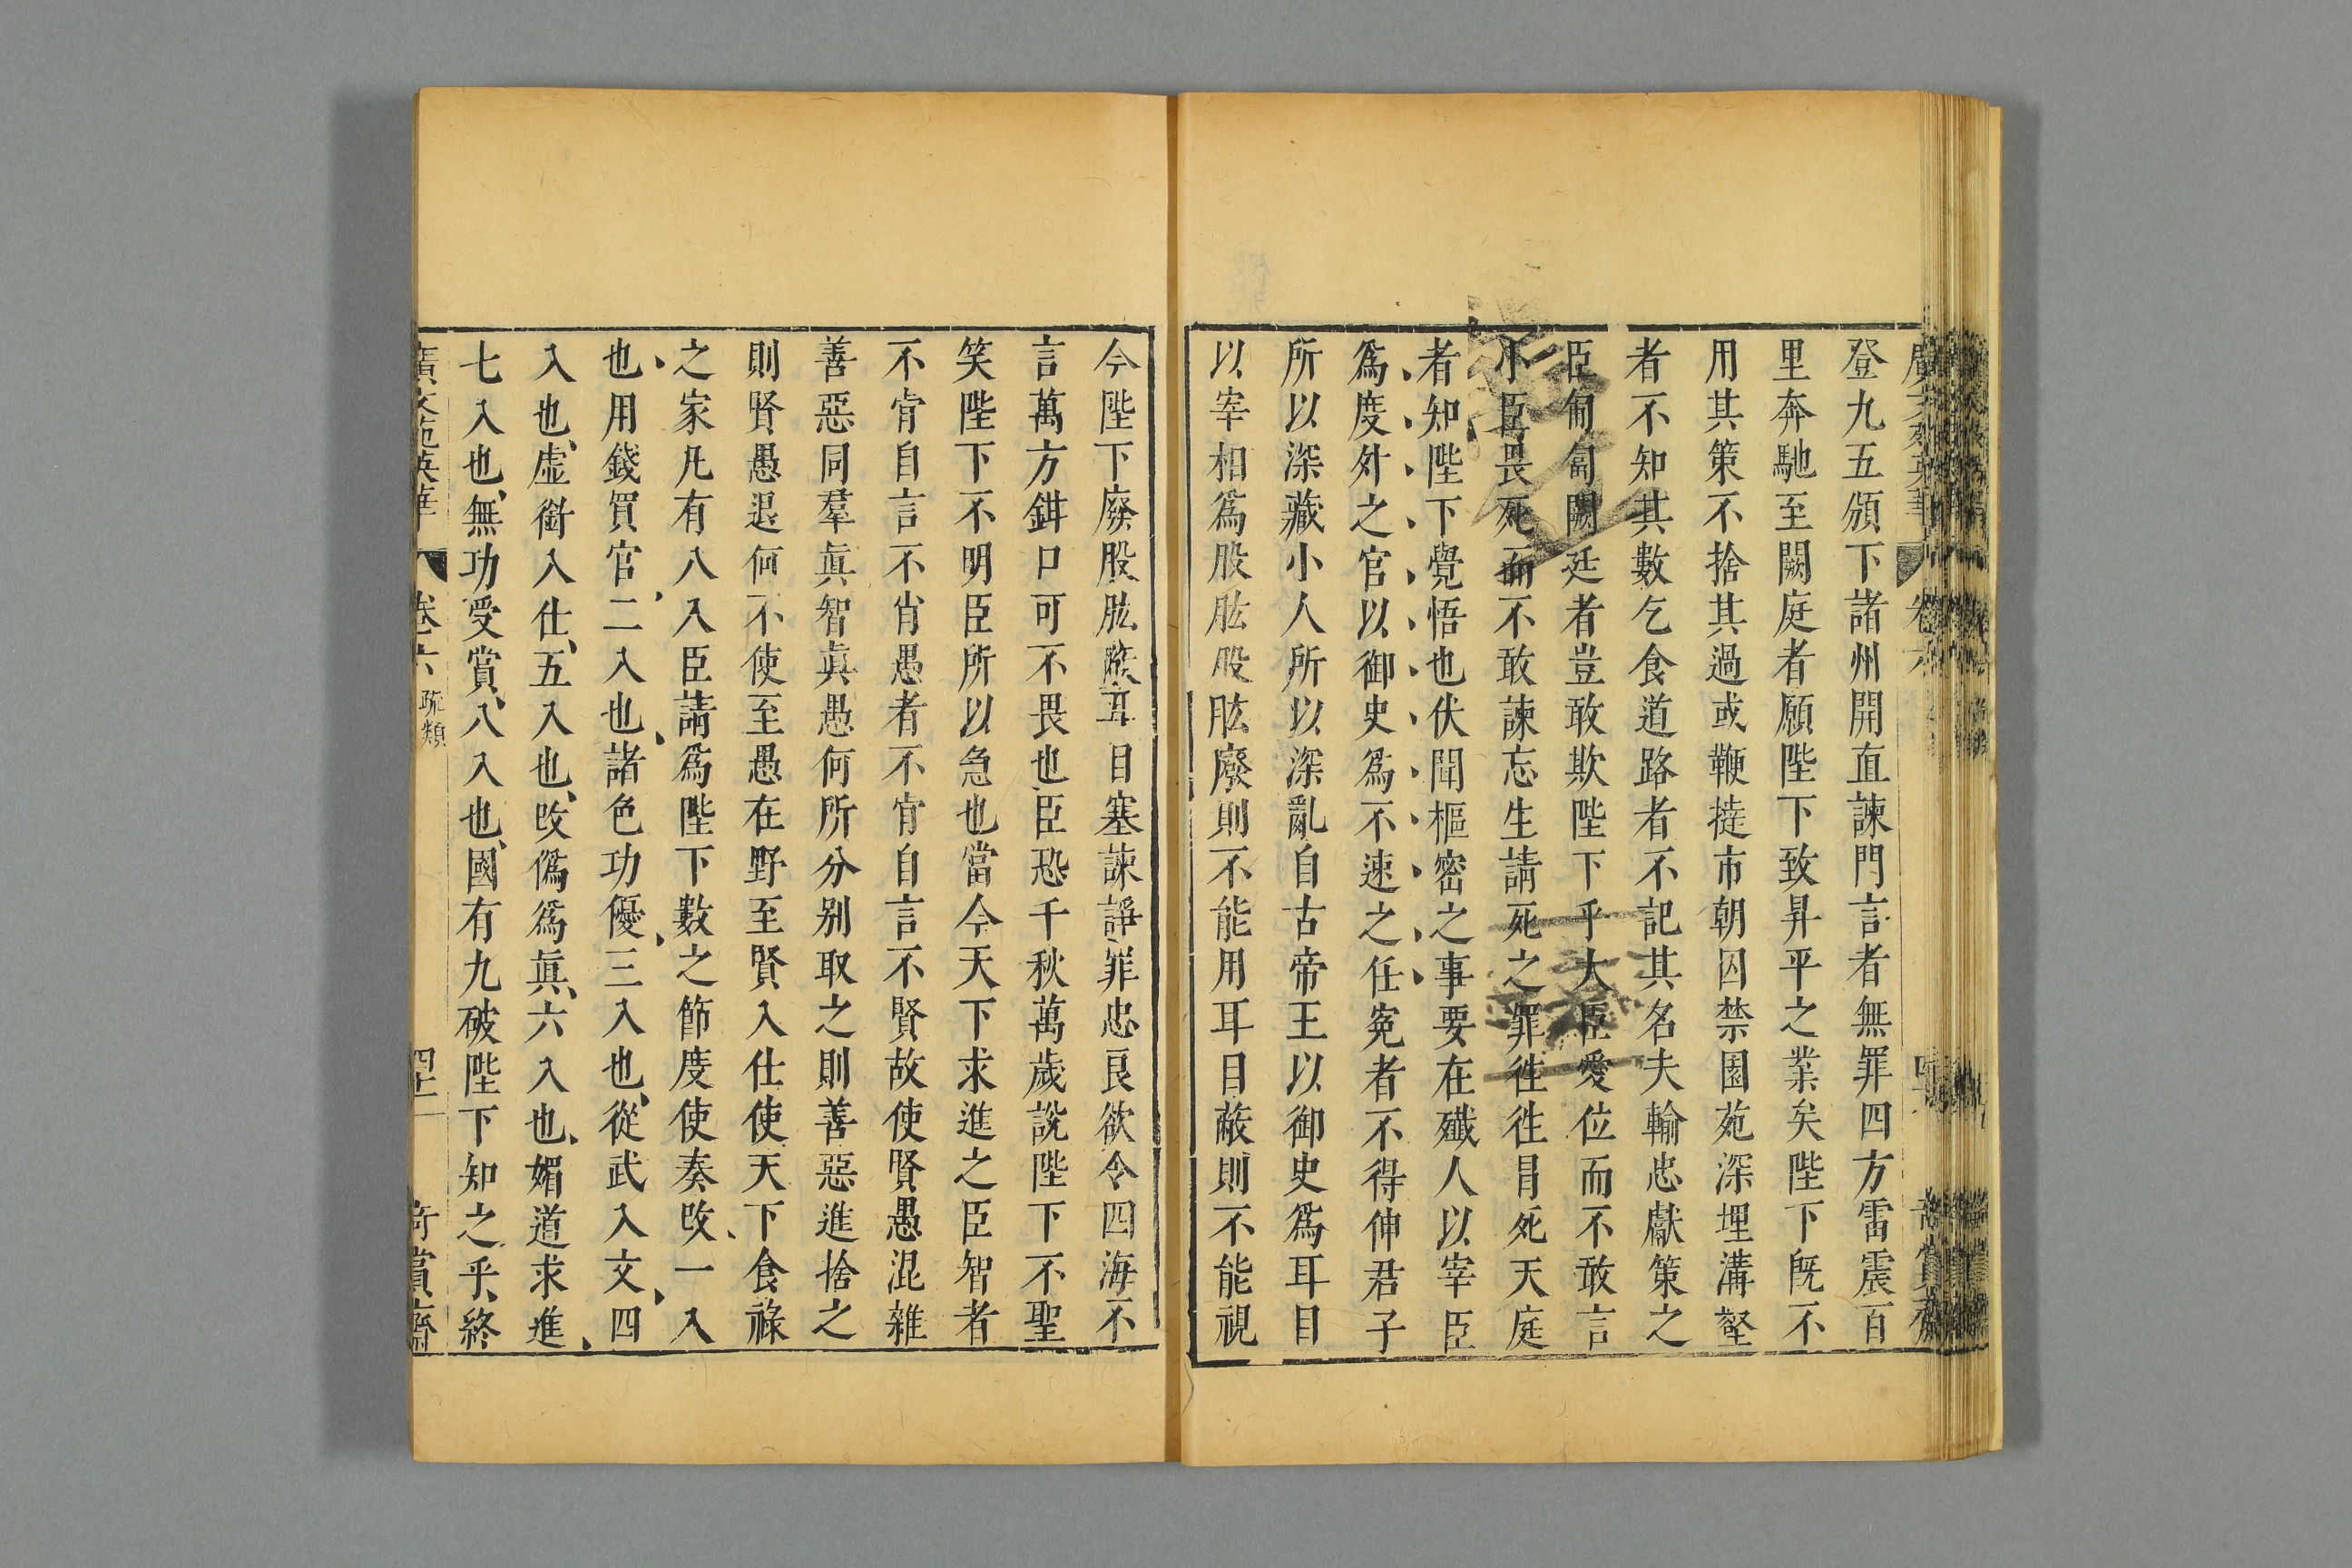 登九五頒下諸州開直諫門言者無罪四方雷震百
里奔馳至闕庭者願陛下致昇平之業矣陛下旣不
用其策不捨其過或鞭撻市朝囚禁園苑深埋溝壑
者不知其數乞食道路者不記其名夫輸忠獻策之
臣匍匐闕廷者豈敢欺陛下乎大臣愛位而不敢言
小臣畏死而不敢諫忘生請死之罪徃徃冒死天庭
者知陛下覺悟也伏聞樞密之事要在殱人以宰臣
爲度外之官以御史爲不速之任寃者不得伸君子
所以深藏小人所以深亂自古帝王以御史爲耳目
以宰相爲股肱股肱廢則不能用耳目蔽則不能視
今陛下廢股肱蔽耳目塞諫諍罪忠良欲令四海不
言萬方鉗口可不畏也臣恐千秋萬歲說陛下不聖
笑陛下不明臣所以急也當今天下求進之臣智者
不肯自言不肖愚者不肯自言不賢故使賢愚混雜
善惡同羣眞智眞愚何所分别取之則善惡進捨之
則賢愚退何不使至愚在野至賢入仕使天下食祿
之家凡有八入臣請爲陛下數之節度使奏攺、一入
也、用錢買官、二入也、諸色功優、三入也、從武入文、四
入也、虛銜入仕、五入也、攺僞爲眞、六入也、媚道求進、
七入也、無功受賞、八入也、國有九破陛下知之乎、終
廣文苑英華 卷六 疏類